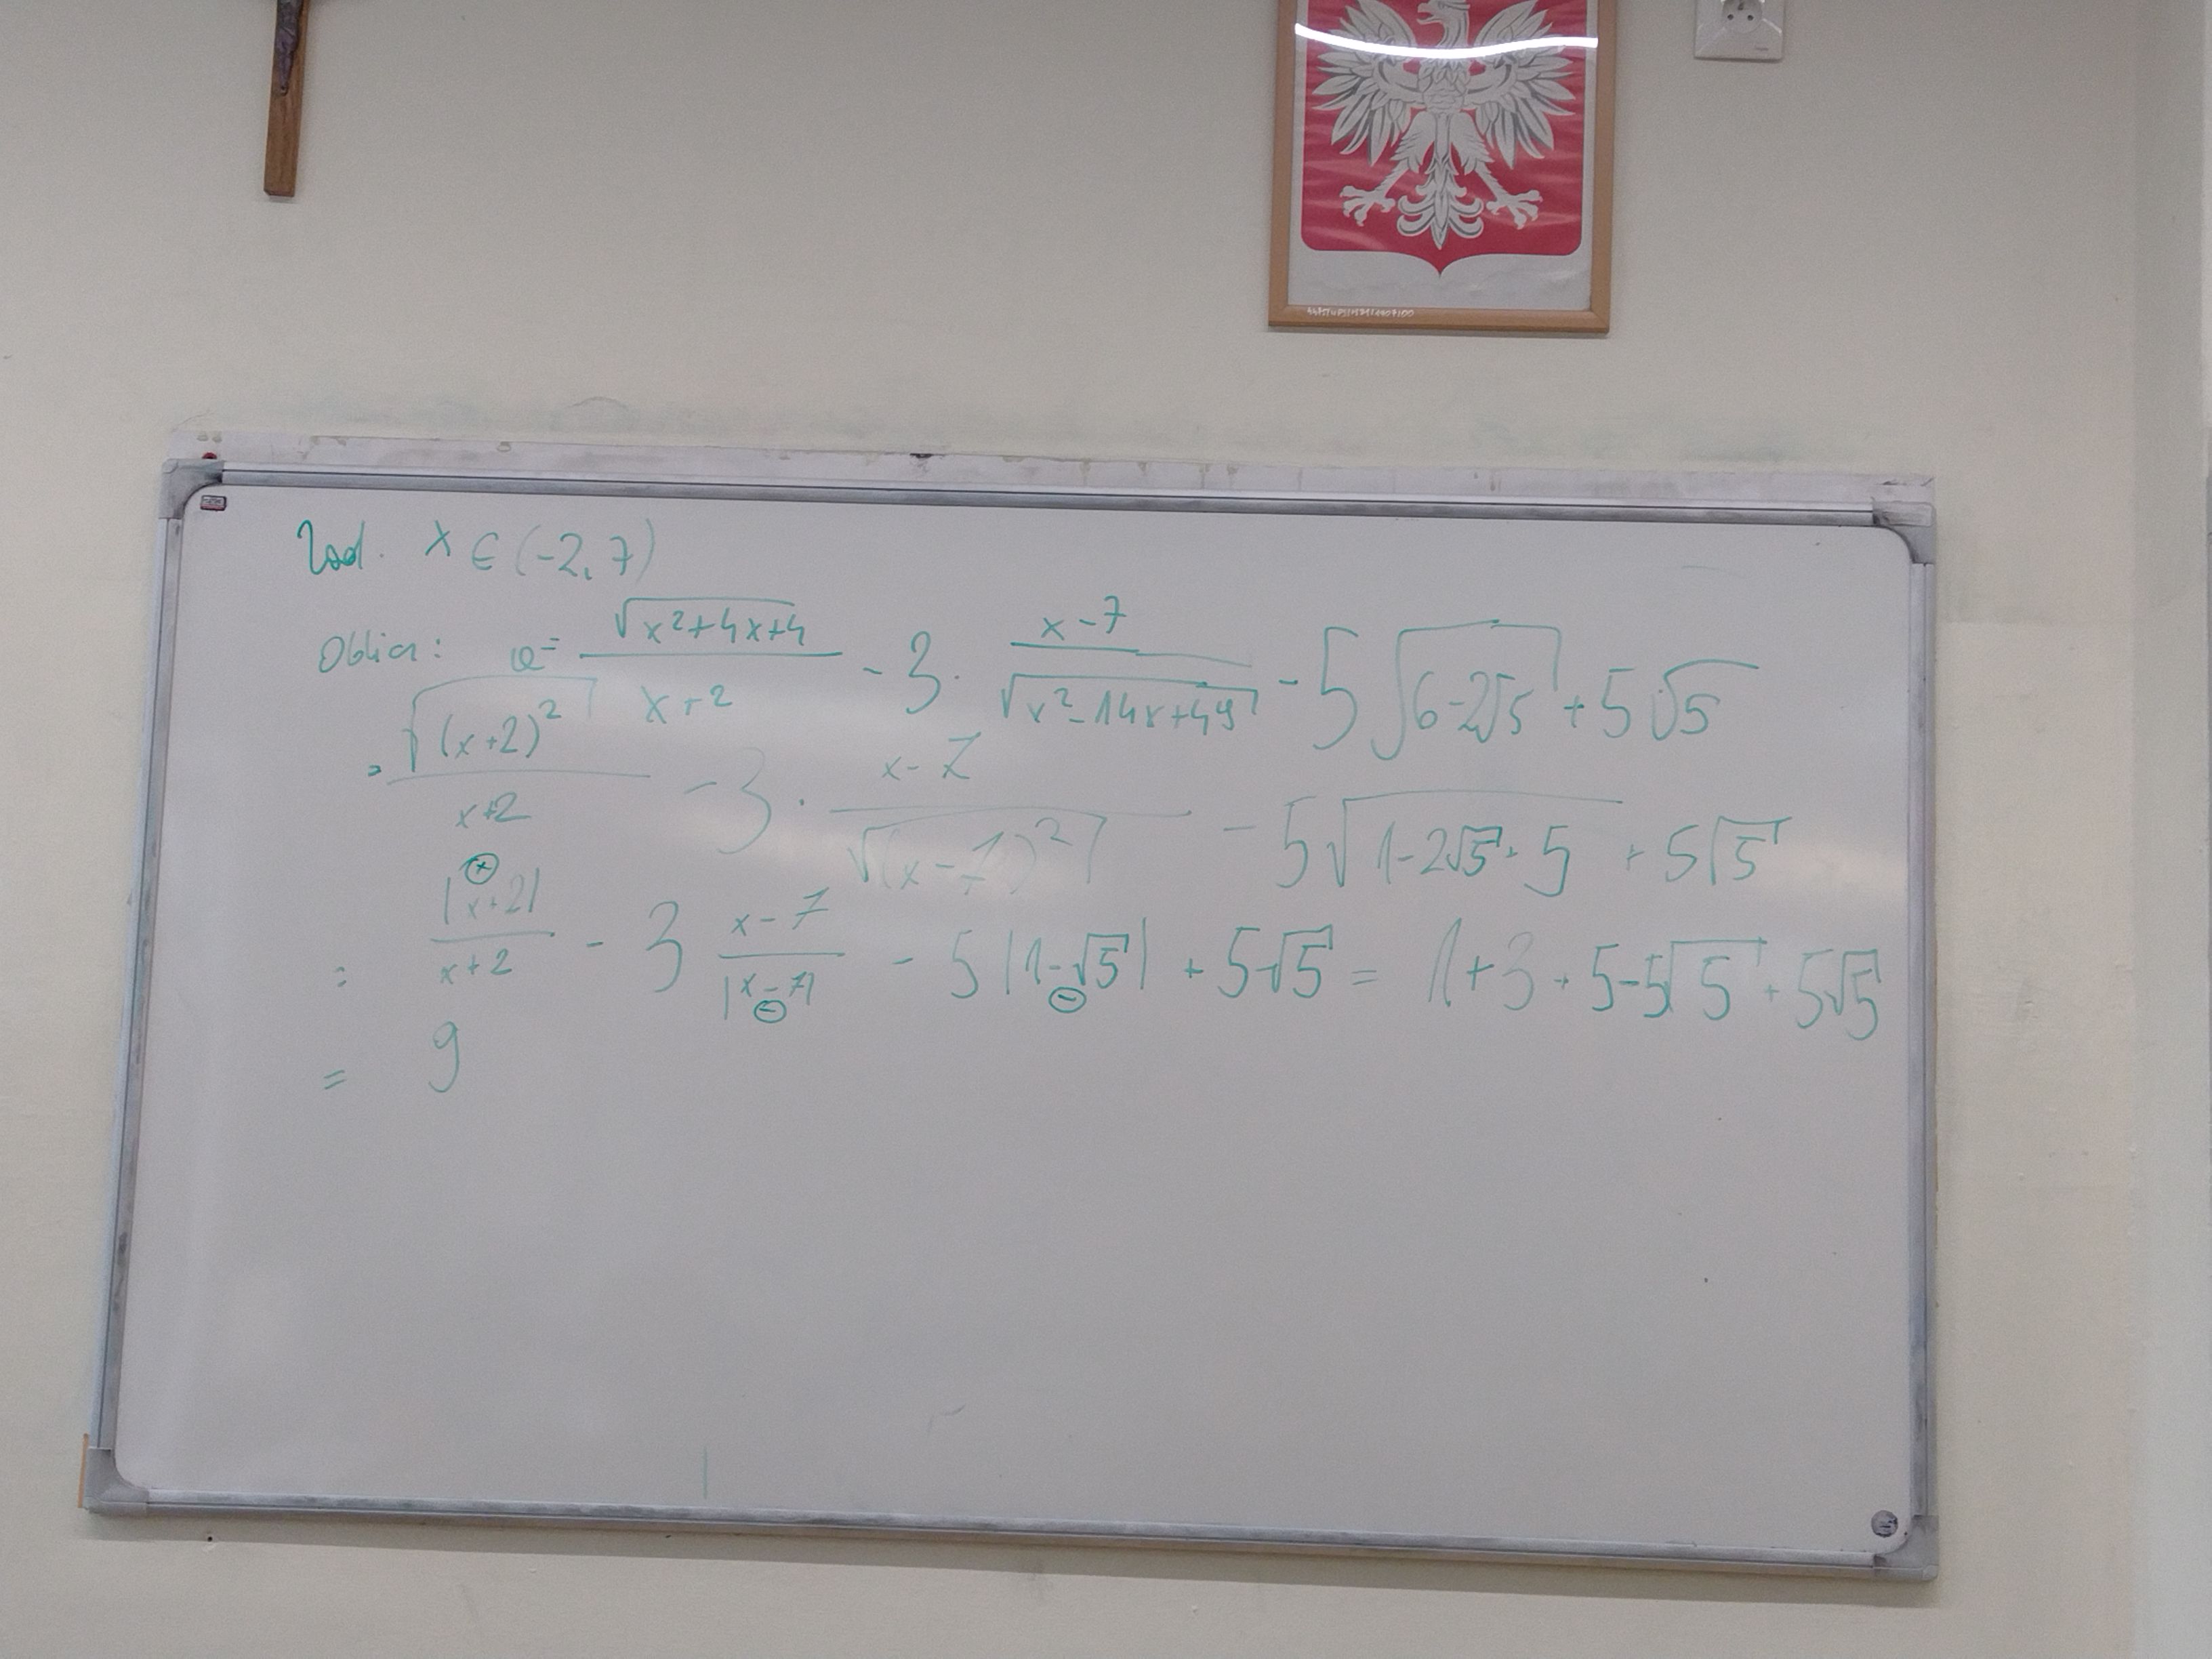 Zad. x ∈ (-2, 7)
Oblicz: a = √(x²+4x+4) / (x+2) - 3 · (x-7) / √(x²-14x+49) - 5√(6-2√5) + 5√5
= √((x+2)²) / (x+2) - 3 · (x-7) / √((x-7)²) - 5√(1-2√5+5) + 5√5
= |x+2| / (x+2) - 3 (x-7) / |x-7| - 5|1-√5| + 5√5 = 1+3+5-5√5+5√5
= 9